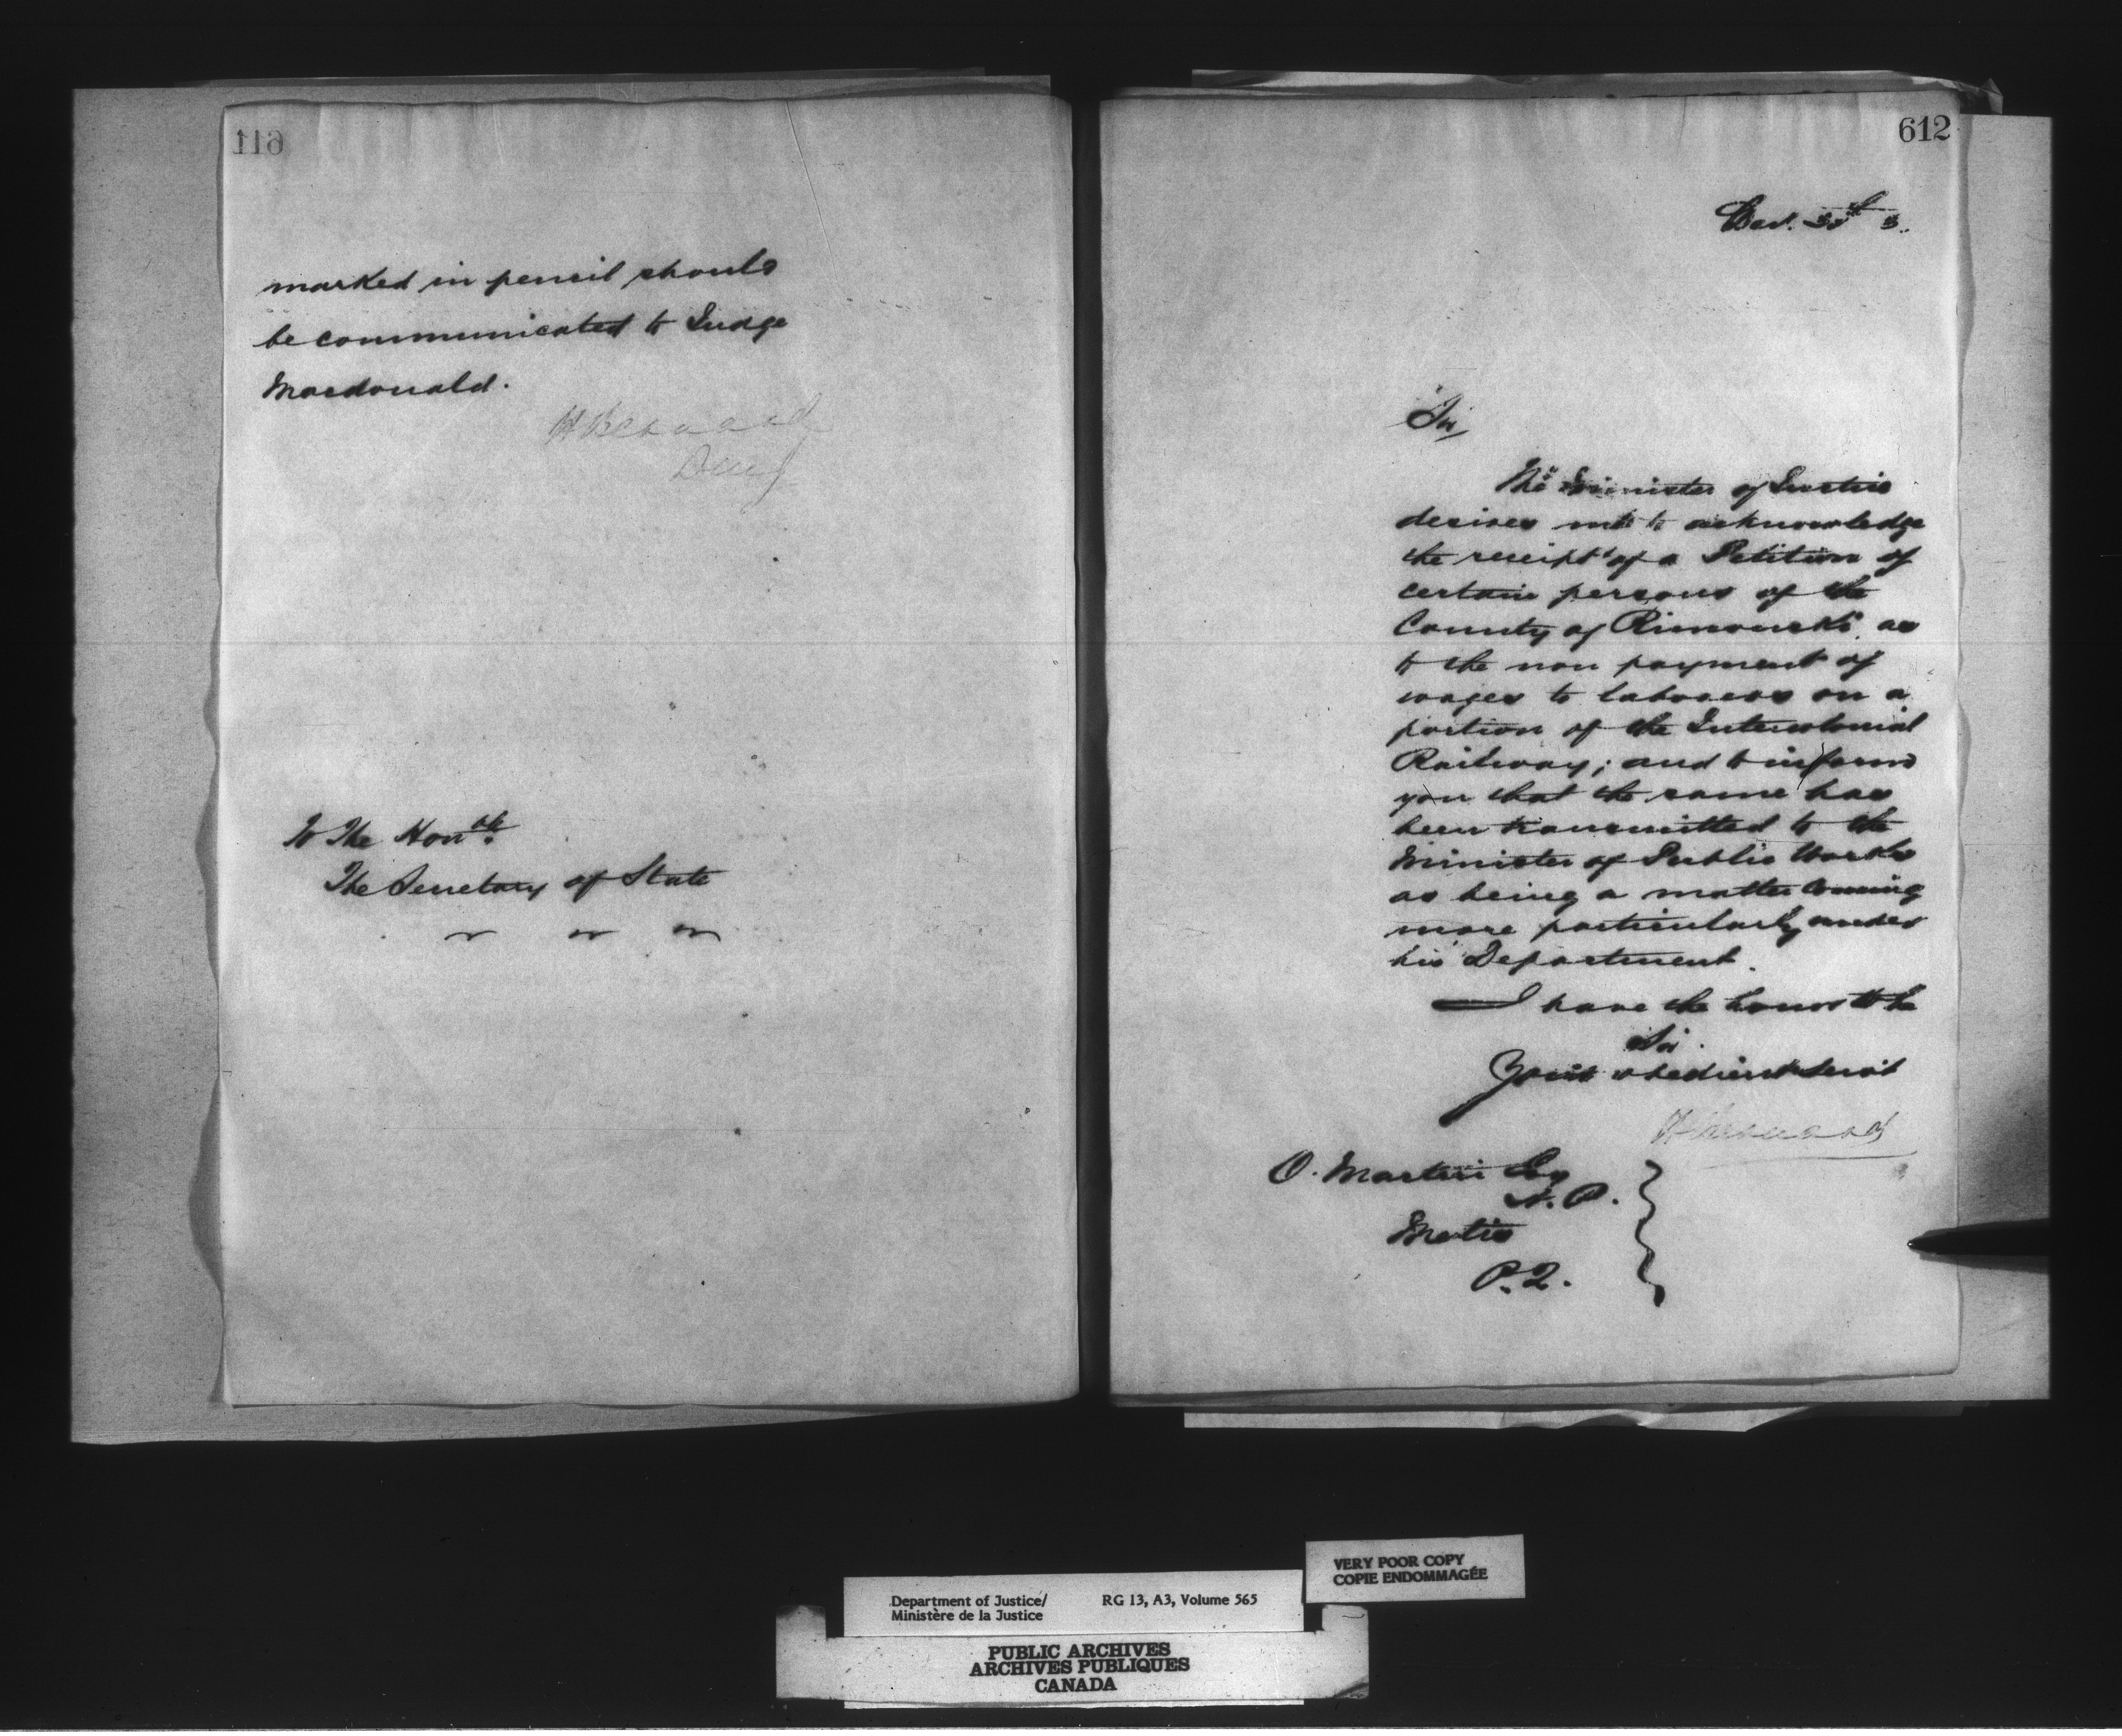 611
marked in pencil should
be communicated to Judge
Macdonald.
H Bernard
To The Honble.
The Secretary of State
612
Dec.
Sir,
The Minister of Justice
desires me to acknowledge
the receipt of a Petition of
certain persons of the
County of Rimouski as
to the non payment of
wages to laborers on a
portion of the Intercolonial
Railway; and to inform
you that the same has
been transmitted to the
Minister of Public Works
as being a matter coming
more particularly under
his Department.
I have the honor to be
Sir.
Your obedient Servt
H Bernard
O. Martin Esq
N. P.
Metis
P. Q.
VERY POOR COPY
COPIE ENDOMMAGÉE
Department of Justice/ RG 13, A3, Volume 565
Ministère de la Justice
PUBLIC ARCHIVES
ARCHIVES PUBLIQUES
CANADA